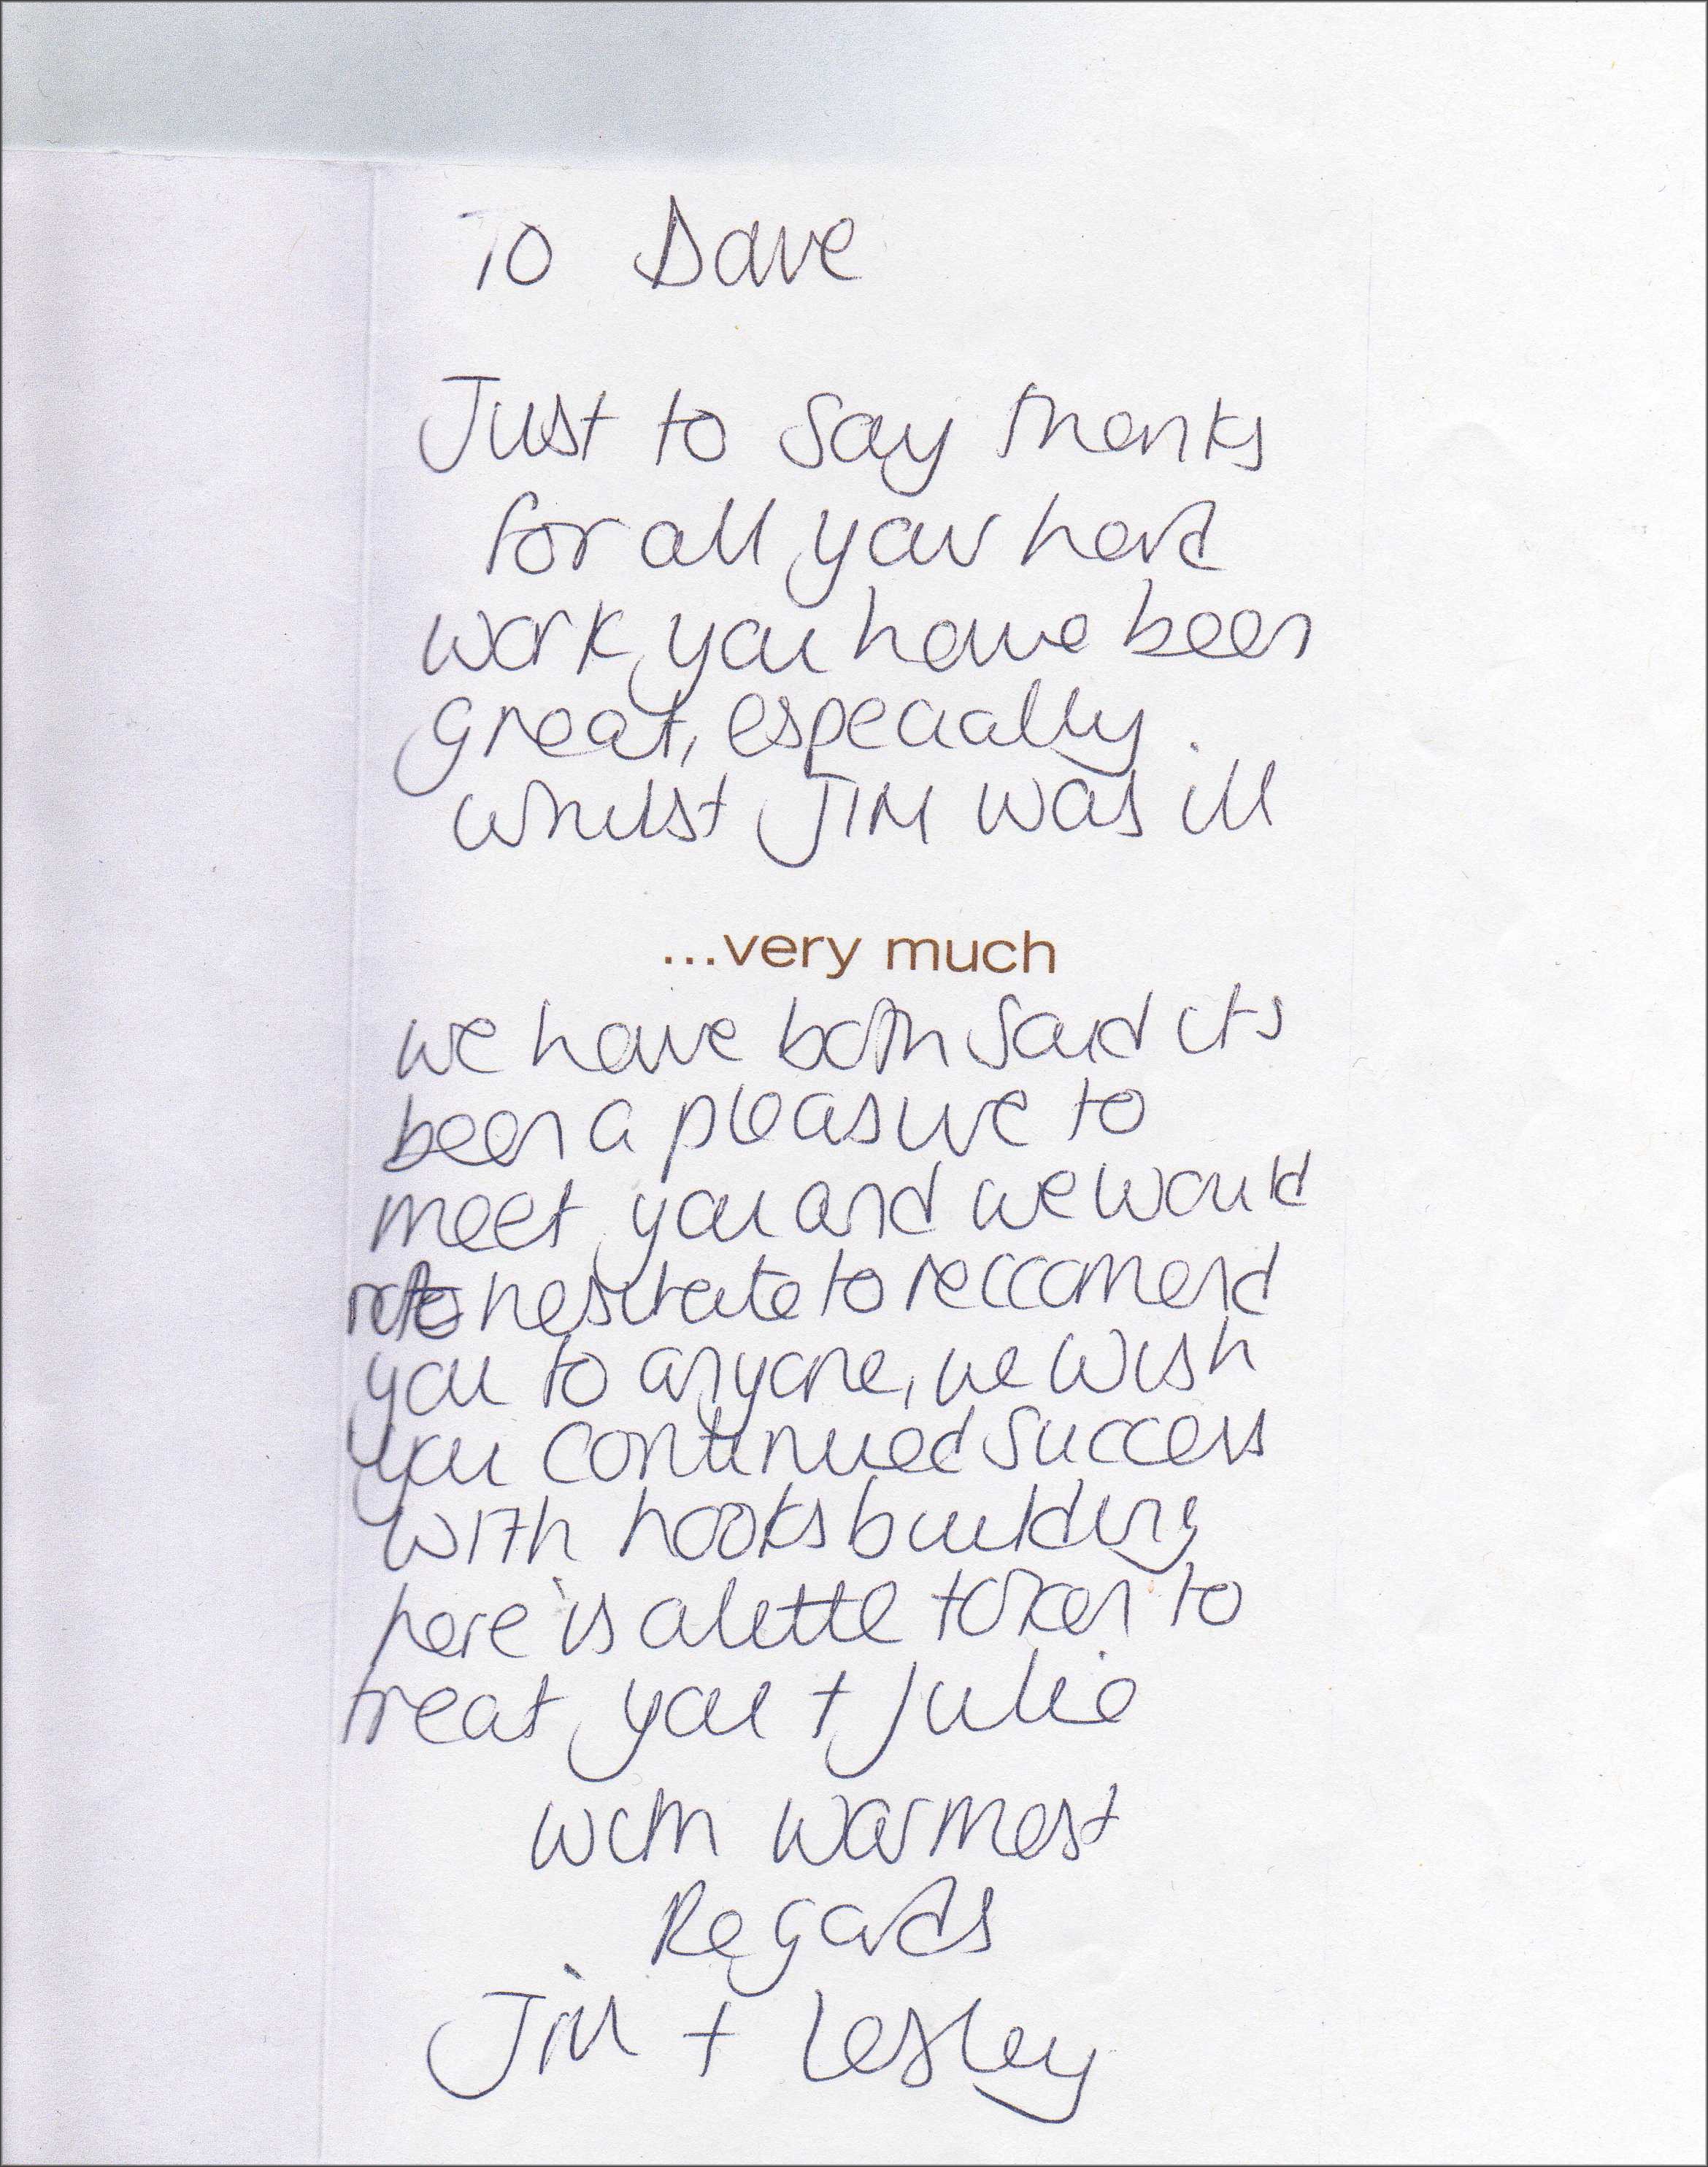 To Dave
Just to say thanks
for all your hard
work you have been
great, especially
whilst JIM was ill
...very much
we have both said its
been a pleasure to
meet you and we would
not hesitate to reccomend
you to anyone, we wish
you continued success
with hooks building
here is a little token to
treat you + Julie
with warmest
Regards
Jim + Lesley